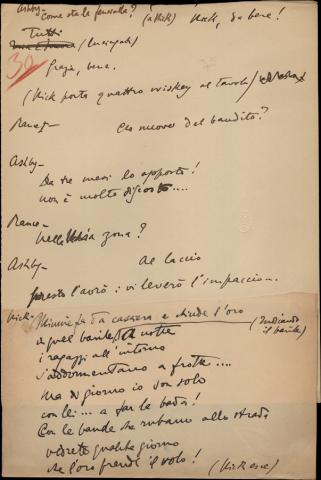 Ashby - come sta la fanciulla? (a Nick) Nick, da bere!
Tutti
(lusingati)
30 Grazie, bene.
(Nick porta quattro whiskey al tavolo)
Rance - Che nuove del bandito?
Ashby -
Da tre mesi lo apposto!
non è molto discosto....
Rance -
nella zona?
Ashby - Al laccio
presto l'avrò: vi leverò l'impaccio...
Nick - Minnie fa da cassiera e chiude l'oro
in quel barile. A notte (Indicando il barile)
i ragazzi all'intorno
s'addormentano a frotte....
Ma di giorno io son solo
con lei... a far la bada!
Con le bande che rubano alla strada
vedrete qualche giorno
che l'oro prende il volo! (Nick esce)